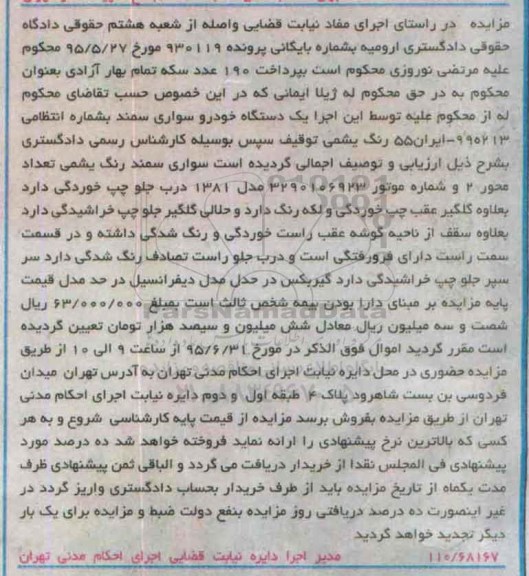 مزایده در راستای اجرای مفاد نیابت قضایی واصله از شعبه هشتم حقوقی دادگاه
حقوقی دادگستری ارومیه بشماره بایگانی پرونده ۹۳۰۱۱۹ مورخ ۹۵/۵/۲۷ محکوم
علیه مرتضی نوروزی محکوم است بپرداخت ۱۹۰ عدد سکه تمام بهار آزادی بعنوان
محکوم به در حق محکوم له ژیلا ایمانی که در این خصوص حسب تقاضای محکوم
له از محکوم علیه توسط این اجرا یک دستگاه خودرو سواری سمند بشماره انتظامی
۲۱۳ه۹۹-ایران۵۵ رنگ یشمی توقیف سپس بوسیله کارشناس رسمی دادگستری
بشرح ذیل ارزیابی و توصیف اجمالی گردیده است سواری سمند رنگ یشمی تعداد
محور ۲ و شماره موتور ۳۲۹۰۱۰۶۹۲۳ مدل ۱۳۸۱ درب جلو چپ خوردگی دارد
بعلاوه گلگیر عقب چپ خوردگی و لکه رنگ دارد و حلالی گلگیر جلو چپ خراشیدگی دارد
بعلاوه سقف از ناحیه گوشه عقب راست خوردگی و رنگ شدگی داشته و در قسمت
سمت راست دارای فرورفتگی است و درب جلو راست تصادف رنگ شدگی دارد سر
سپر جلو چپ خراشیدگی دارد گیربکس در حدل مدل دیفرانسیل در حد مدل قیمت
پایه مزایده بر مبنای دارا بودن بیمه شخص ثالث است بمبلغ ۶۳/۰۰۰/۰۰۰ ریال
شصت و سه میلیون ریال معادل شش میلیون و سیصد هزار تومان تعیین گردیده
است مقرر گردید اموال فوق الذکر در مورخ ۹۵/۶/۳۱ از ساعت ۹ الی ۱۰ از طریق
مزایده حضوری در محل دایره نیابت اجرای احکام مدنی تهران به آدرس تهران میدان
فردوسی بن بست شاهرود پلاک ۴ طبقه اول و دوم دایره نیابت اجرای احکام مدنی
تهران از طریق مزایده بفروش برسد مزایده از قیمت پایه کارشناسی شروع و به هر
کسی که بالاترین نرخ پیشنهادی را ارائه نماید فروخته خواهد شد ده درصد مورد
پیشنهادی فی المجلس نقدا از خریدار دریافت می گردد و الباقی ثمن پیشنهادی ظرف
مدت یکماه از تاریخ مزایده باید از طرف خریدار بحساب دادگستری واریز گردد در
غیر اینصورت ده درصد دریافتی روز مزایده بنفع دولت ضبط و مزایده برای یک بار
دیگر تجدید خواهد گردید
۱۱۰/۶۸۱۶۷ مدیر اجرا دایره نیابت قضایی اجرای احکام مدنی تهران
ParsNamadData